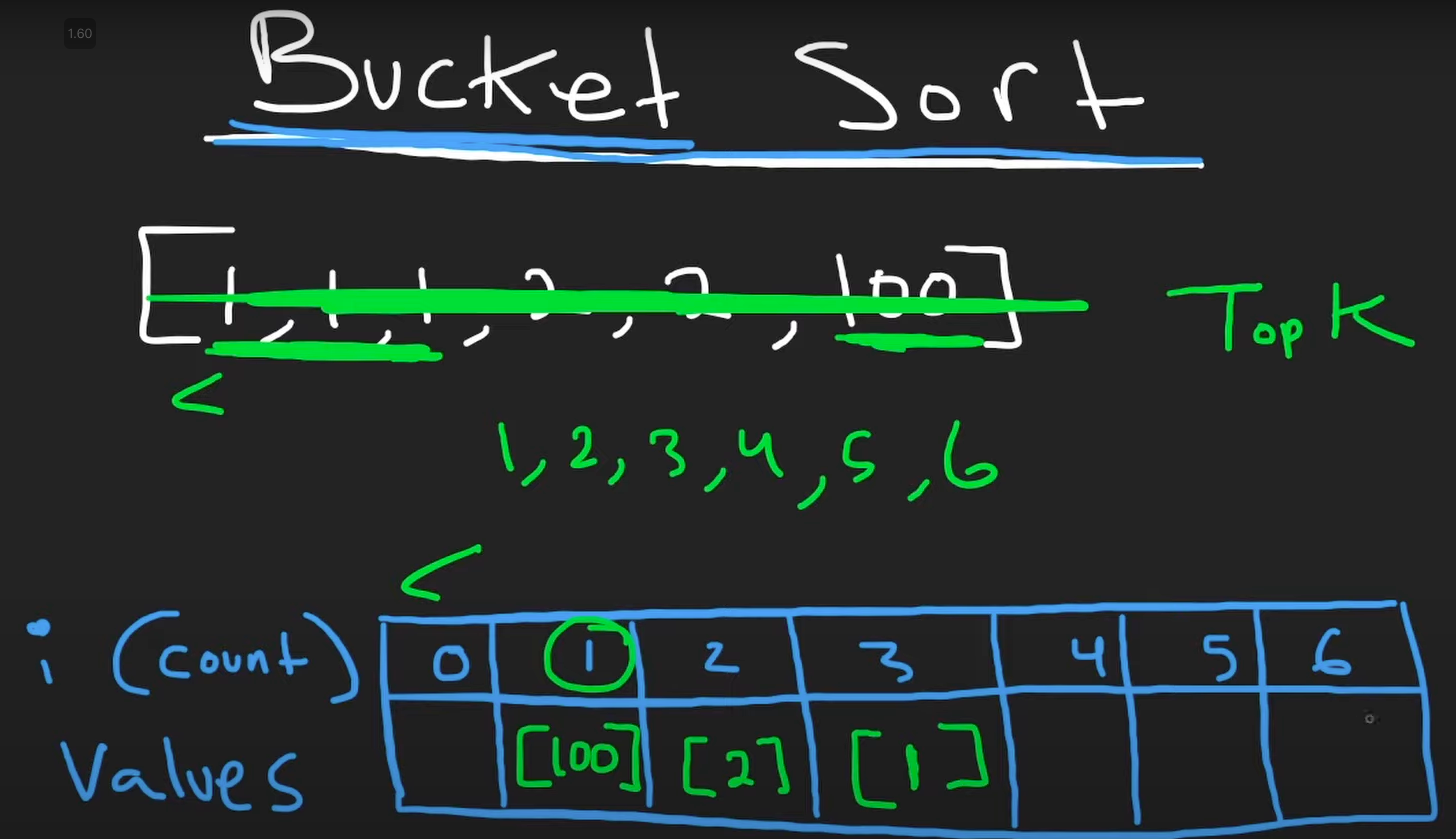 1.60
Bucket Sort
[1, 1, 1, 2, 2, 100]
Top K
<
1, 2, 3, 4, 5, 6
<
i (count) 0 1 2 3 4 5 6
Values [100] [2] [1]